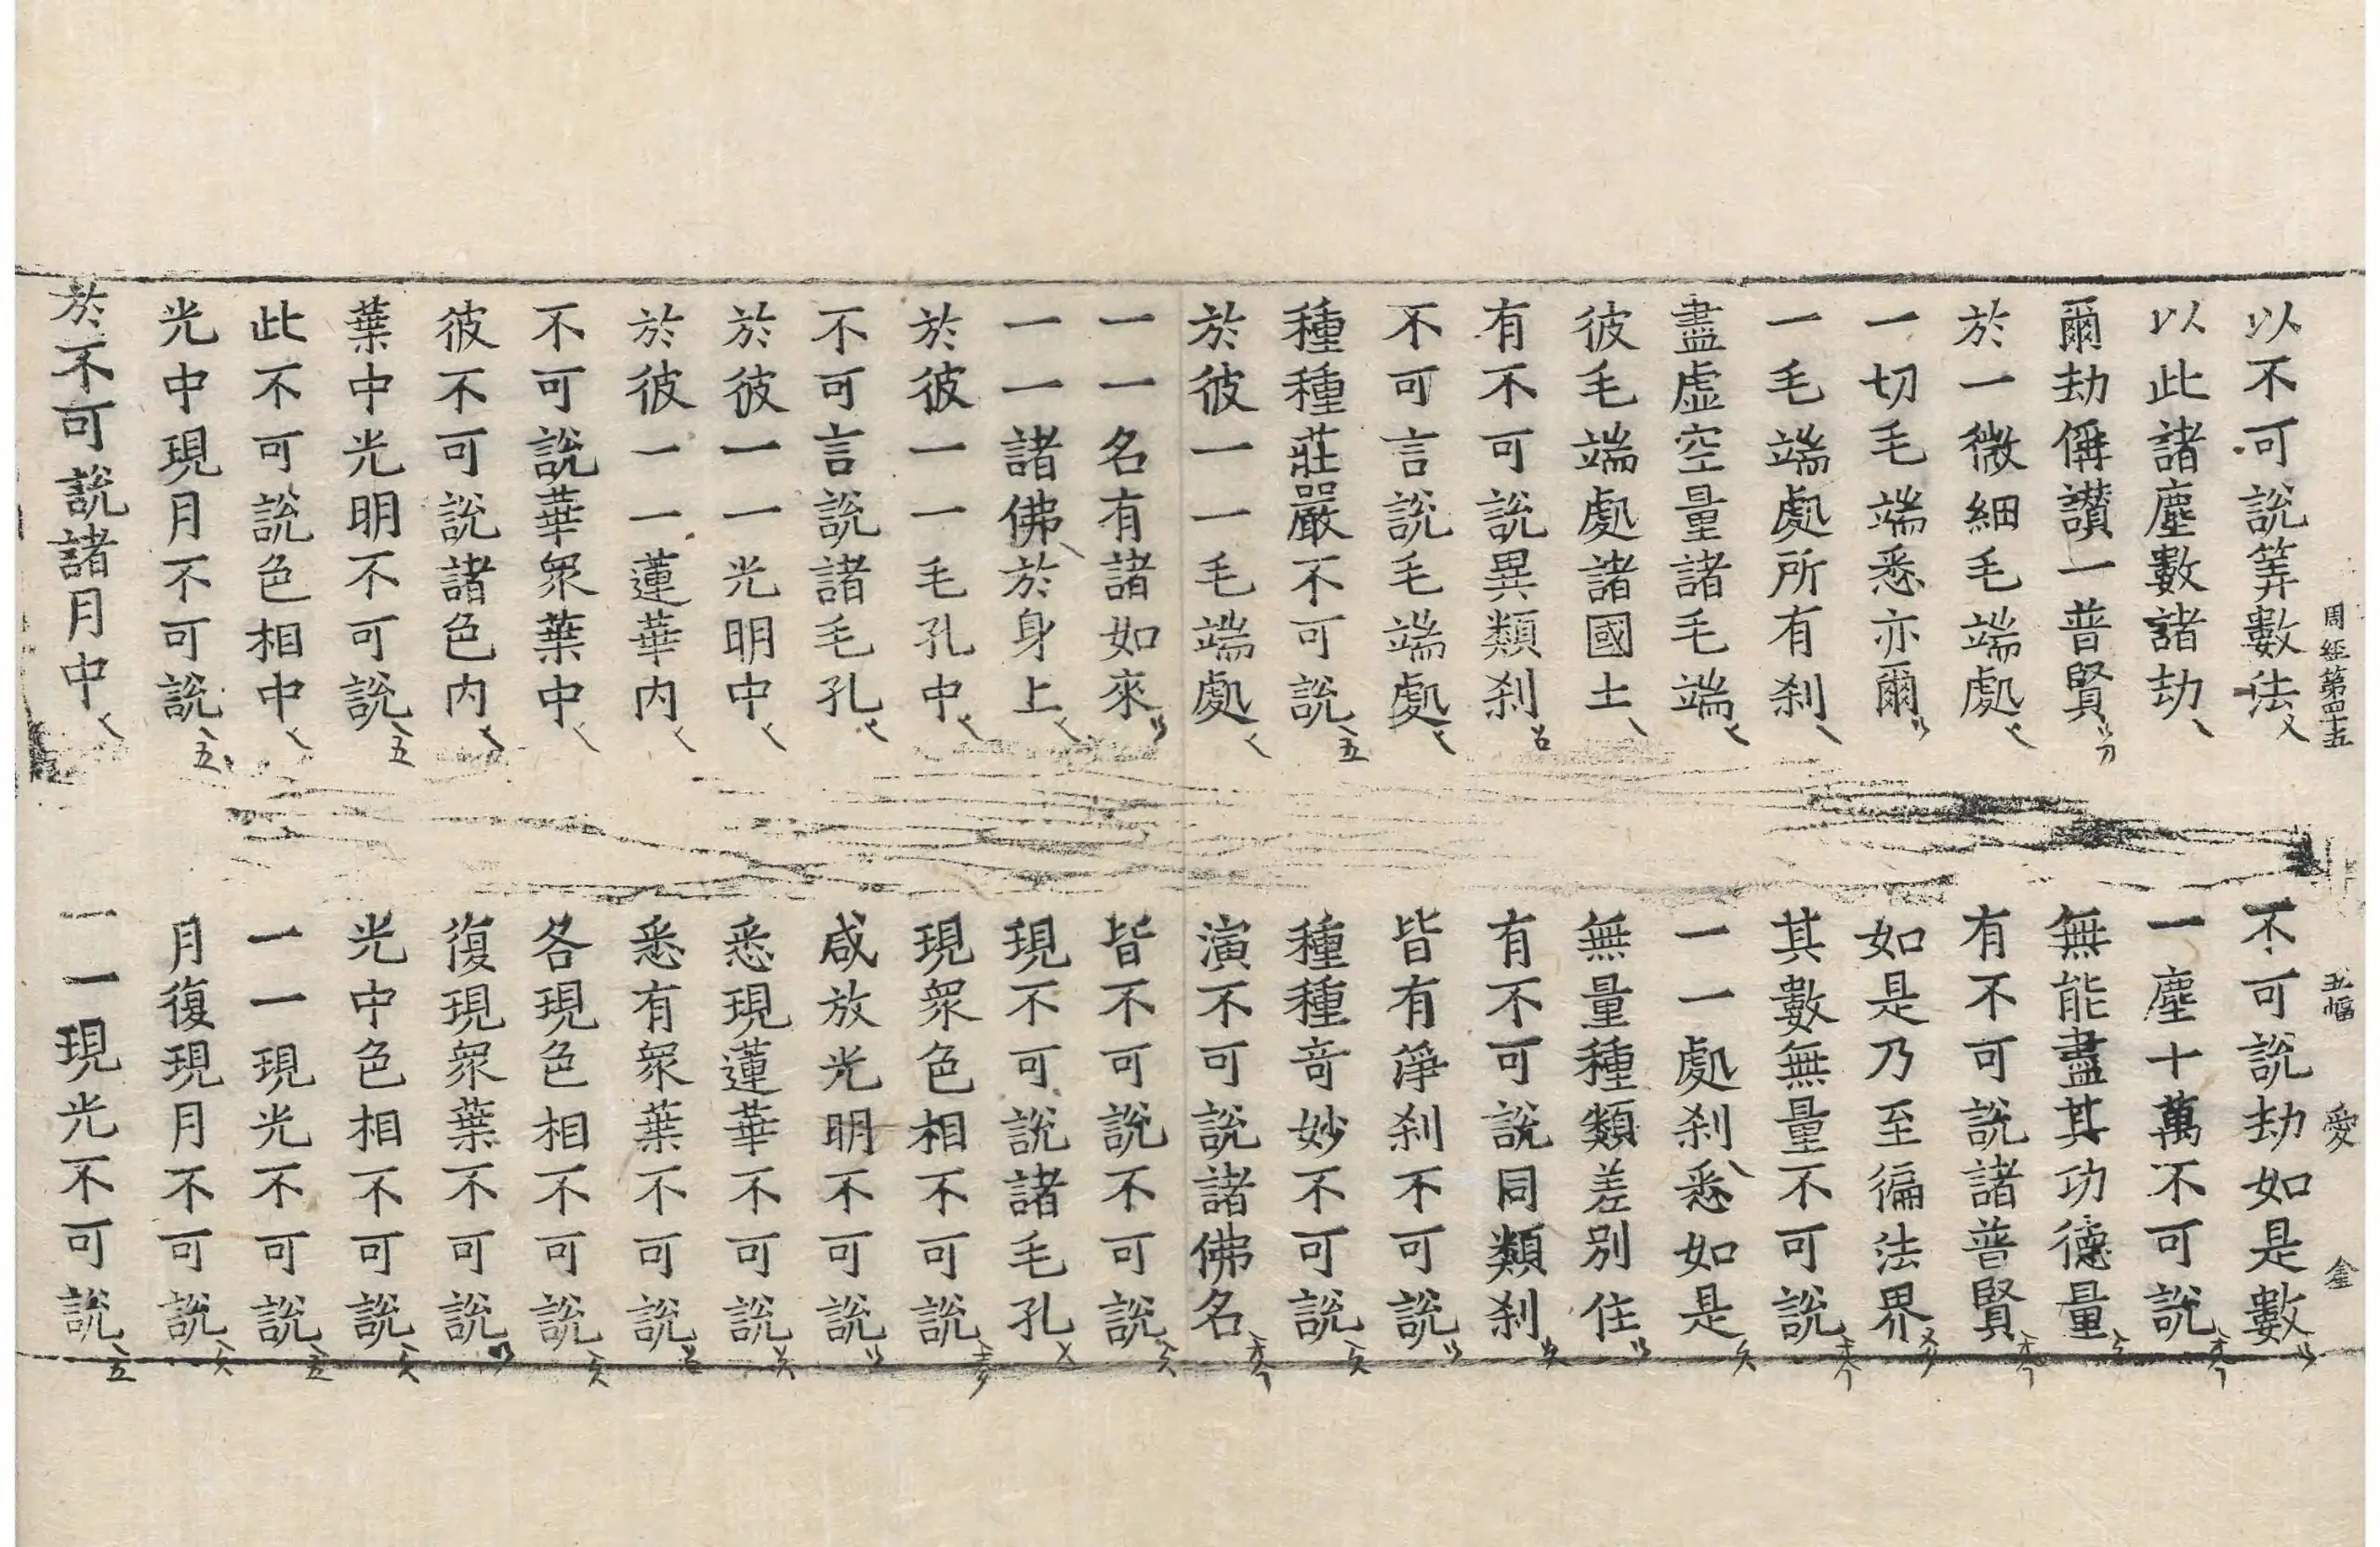 周經第四十五 五幅 愛 金
以不可說筭數法 不可說劫如是數
以此諸塵數諸劫 一塵十萬不可說
爾劫偁讃一普賢 無能盡其功德量
於一微細毛端處 有不可說諸普賢
一切毛端悉亦爾 如是乃至徧法界
一毛端處所有刹 其數無量不可說
盡虚空量諸毛端 一一處刹悉如是
彼毛端處諸國土 無量種類差別住
有不可說異類刹 有不可說同類刹
不可言說毛端處 皆有淨刹不可說
種種莊嚴不可說 種種竒妙不可說
於彼一一毛端處 演不可說諸佛名
一一名有諸如來 皆不可說不可說
一一諸佛於身上 現不可說諸毛孔
於彼一一毛孔中 現衆色相不可說
不可言說諸毛孔 咸放光明不可說
於彼一一光明中 悉現蓮華不可說
於彼一一蓮華内 悉有衆葉不可說
不可說華衆葉中 各現色相不可說
彼不可說諸色内 復現衆葉不可說
葉中光明不可說 光中色相不可說
此不可說色相中 一一現光不可說
光中現月不可說 月復現月不可說
於不可說諸月中 一一現光不可說